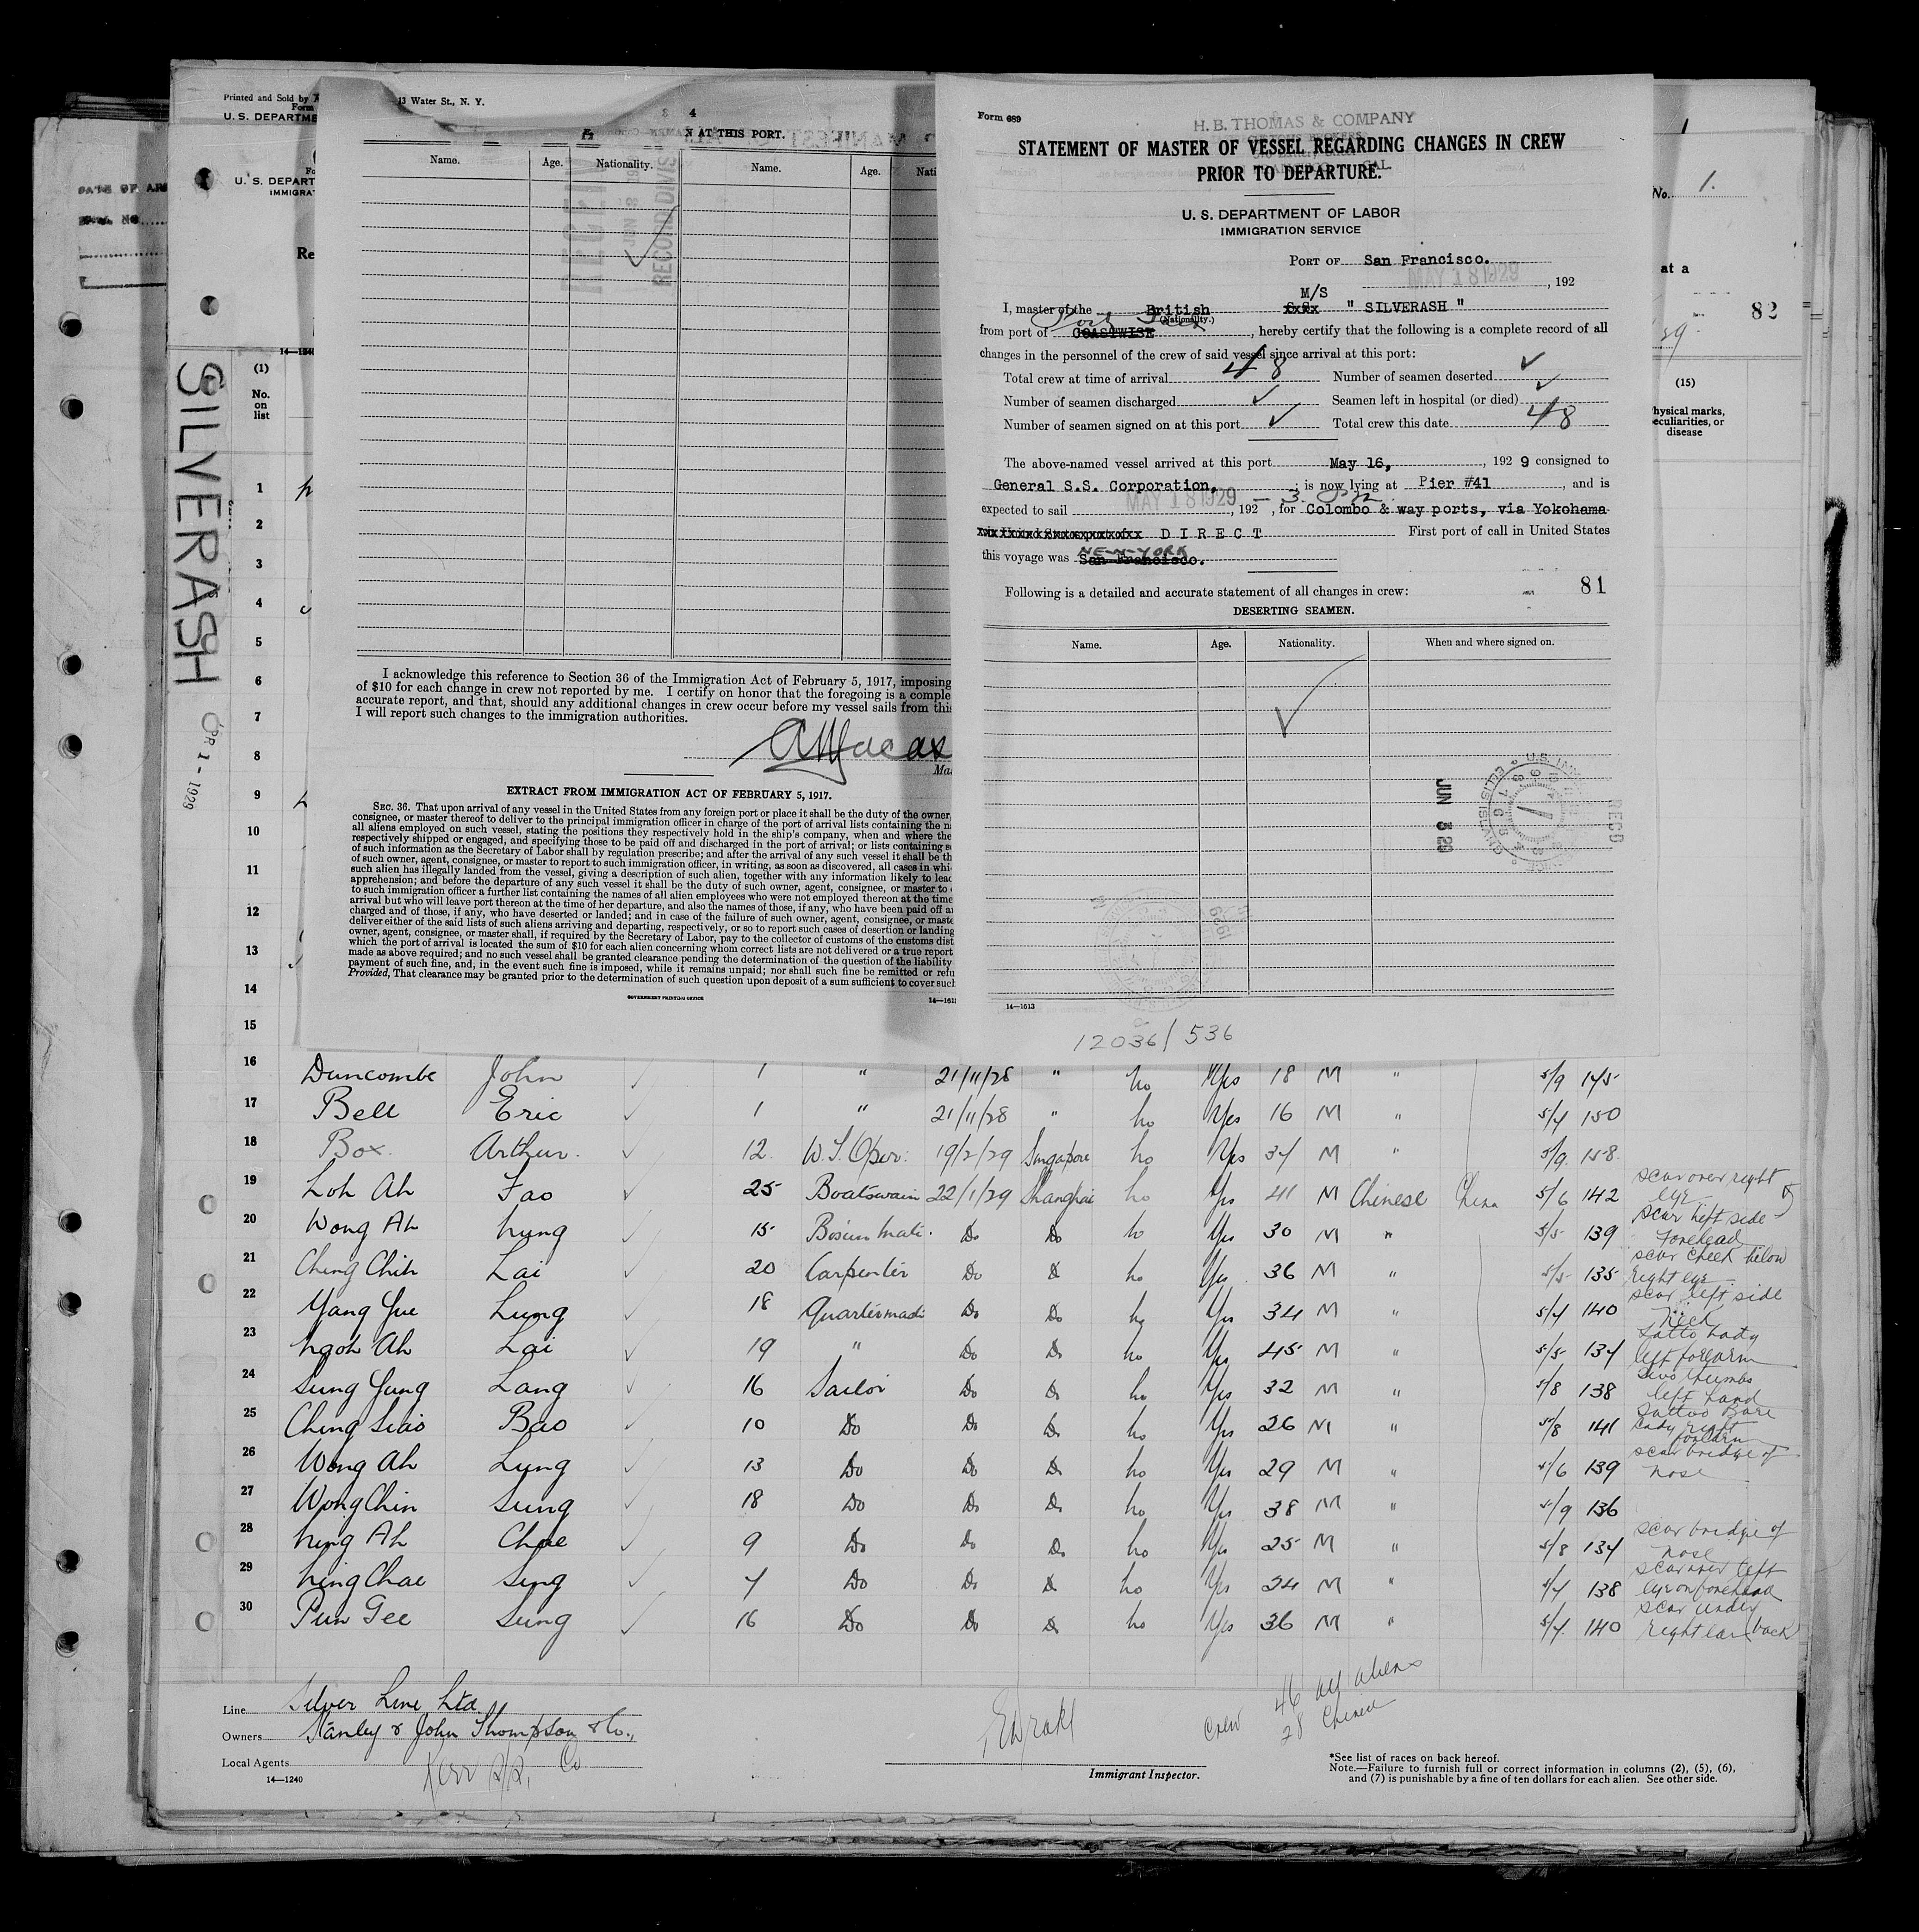 Printed and Sold by
13 Water St., N. Y.
Form
U. S. DEPARTME
U. S. DEPART
IMMIGRA
Re
SILVERASH
APR 1 - 1929
14—1240
(1)
No.
on
list
N AT THIS PORT.
Name. Age. Nationality. Name. Age. Nati
I acknowledge this reference to Section 36 of the Immigration Act of February 5, 1917, imposing
of $10 for each change in crew not reported by me. I certify on honor that the foregoing is a comple
accurate report, and that, should any additional changes in crew occur before my vessel sails from this
I will report such changes to the immigration authorities.
Ma
EXTRACT FROM IMMIGRATION ACT OF FEBRUARY 5, 1917.
SEC. 36. That upon arrival of any vessel in the United States from any foreign port or place it shall be the duty of the owner,
consignee, or master thereof to deliver to the principal immigration officer in charge of the port of arrival lists containing the n
all aliens employed on such vessel, stating the positions they respectively hold in the ship's company, when and where the
respectively shipped or engaged, and specifying those to be paid off and discharged in the port of arrival; or lists containing s
of such information as the Secretary of Labor shall by regulation prescribe; and after the arrival of any such vessel it shall be th
of such owner, agent, consignee, or master to report to such immigration officer, in writing, as soon as discovered, all cases in whi
such alien has illegally landed from the vessel, giving a description of such alien, together with any information likely to lead
apprehension; and before the departure of any such vessel it shall be the duty of such owner, agent, consignee, or master to
to such immigration officer a further list containing the names of all alien employees who were not employed thereon at the time
arrival but who will leave port thereon at the time of her departure, and also the names of those, if any, who have been paid off a
charged and of those, if any, who have deserted or landed; and in case of the failure of such owner, agent, consignee, or maste
deliver either of the said lists of such aliens arriving and departing, respectively, or so to report such cases of desertion or landing
owner, agent, consignee, or master shall, if required by the Secretary of Labor, pay to the collector of customs of the customs dist
which the port of arrival is located the sum of $10 for each alien concerning whom correct lists are not delivered or a true report
made as above required; and no such vessel shall be granted clearance pending the determination of the question of the liability
payment of such fine, and, in the event such fine is imposed, while it remains unpaid; nor shall such fine be remitted or refu
Provided, That clearance may be granted prior to the determination of such question upon deposit of a sum sufficient to cover such
GOVERNMENT PRINTING OFFICE
Form 689
H. B. THOMAS & COMPANY
STATEMENT OF MASTER OF VESSEL REGARDING CHANGES IN CREW
PRIOR TO DEPARTURE.
U. S. DEPARTMENT OF LABOR
IMMIGRATION SERVICE
PORT OF San Francisco.
MAY 18 1929 , 192
M/S
I, master of the British " SILVERASH "
(Nationality.)
from port of COASTWISE , hereby certify that the following is a complete record of all
changes in the personnel of the crew of said vessel since arrival at this port:
Total crew at time of arrival 48 Number of seamen deserted ✓
Number of seamen discharged ✓ Seamen left in hospital (or died) ✓
Number of seamen signed on at this port ✓ Total crew this date 48
The above-named vessel arrived at this port May 16, , 192 9 consigned to
General S.S. Corporation, ; is now lying at Pier #41 , and is
expected to sail MAY 18 1929 — 3 PM , 192 , for Colombo & way ports, via Yokohama
DIRECT First port of call in United States
this voyage was San Francisco. NEW-YORK
Following is a detailed and accurate statement of all changes in crew: 81
DESERTING SEAMEN.
Name. Age. Nationality. When and where signed on.
JUN 3 29
RECD
14—1613
12036/536
No. 1.
at a
82
(15)
hysical marks,
eculiarities, or
disease
1
2
3
4
5
6
7
8
9
10
11
12
13
14
15
16 Duncombe John ✓ 1 " 21/11/28 " no Yes 18 M " 5/9 145
17 Bell Eric ✓ 1 " 21/11/28 " no Yes 16 M " 5/4 150
18 Box Arthur. ✓ 12 W.T. Oper. 19/2/29 Singapore no Yes 34 M " 5/9 158
19 Loh Ah Fao ✓ 25 Boatswain 22/1/29 Shanghai no Yes 41 M Chinese China 5/6 142 scar over right eye
20 Wong Ah hung ✓ 15 Bosun Mate. Do Do no Yes 30 M " 5/5 139 scar left side forehead
21 Ching Chih Lai ✓ 20 Carpenter Do Do no Yes 36 M " 5/5 135 scar cheek below right eye
22 Yang Yue Lung ✓ 18 Quartermaster Do Do no Yes 34 M " 5/4 140 scar left side neck
23 Ngoh Ah Lai ✓ 19 " Do Do no Yes 45 M " 5/5 134 Tatto lady left forearm
24 Sung Yung Lang ✓ 16 Sailor Do Do no Yes 32 M " 5/8 138 two thumbs left hand
25 Ching Siao Bao ✓ 10 Do Do Do no Yes 26 M " 5/8 141 Tattoo Bare lady right forearm
26 Wong Ah Lung ✓ 13 Do Do Do no Yes 29 M " 5/6 139 scar bridge of nose
27 Wong Chin Sung ✓ 18 Do Do Do no Yes 38 M " 5/9 136
28 Ning Ah Choe ✓ 9 Do Do Do no Yes 25 M " 5/8 134 scar bridge of nose
29 Ning Chae Sing ✓ 4 Do Do Do no Yes 24 M " 5/4 138 scar over left eye on forehead
30 Pun Gee Sung ✓ 16 Do Do Do no Yes 36 M " 5/4 140 scar under right ear (back)
Line Silver Line Ltd.
Owners Stanley & John Thompson & Co.,
Local Agents Kerr S/S. Co
14—1240
Immigrant Inspector.
Crew 46 all aliens
28 Chinese
*See list of races on back hereof.
Note.—Failure to furnish full or correct information in columns (2), (5), (6),
and (7) is punishable by a fine of ten dollars for each alien. See other side.